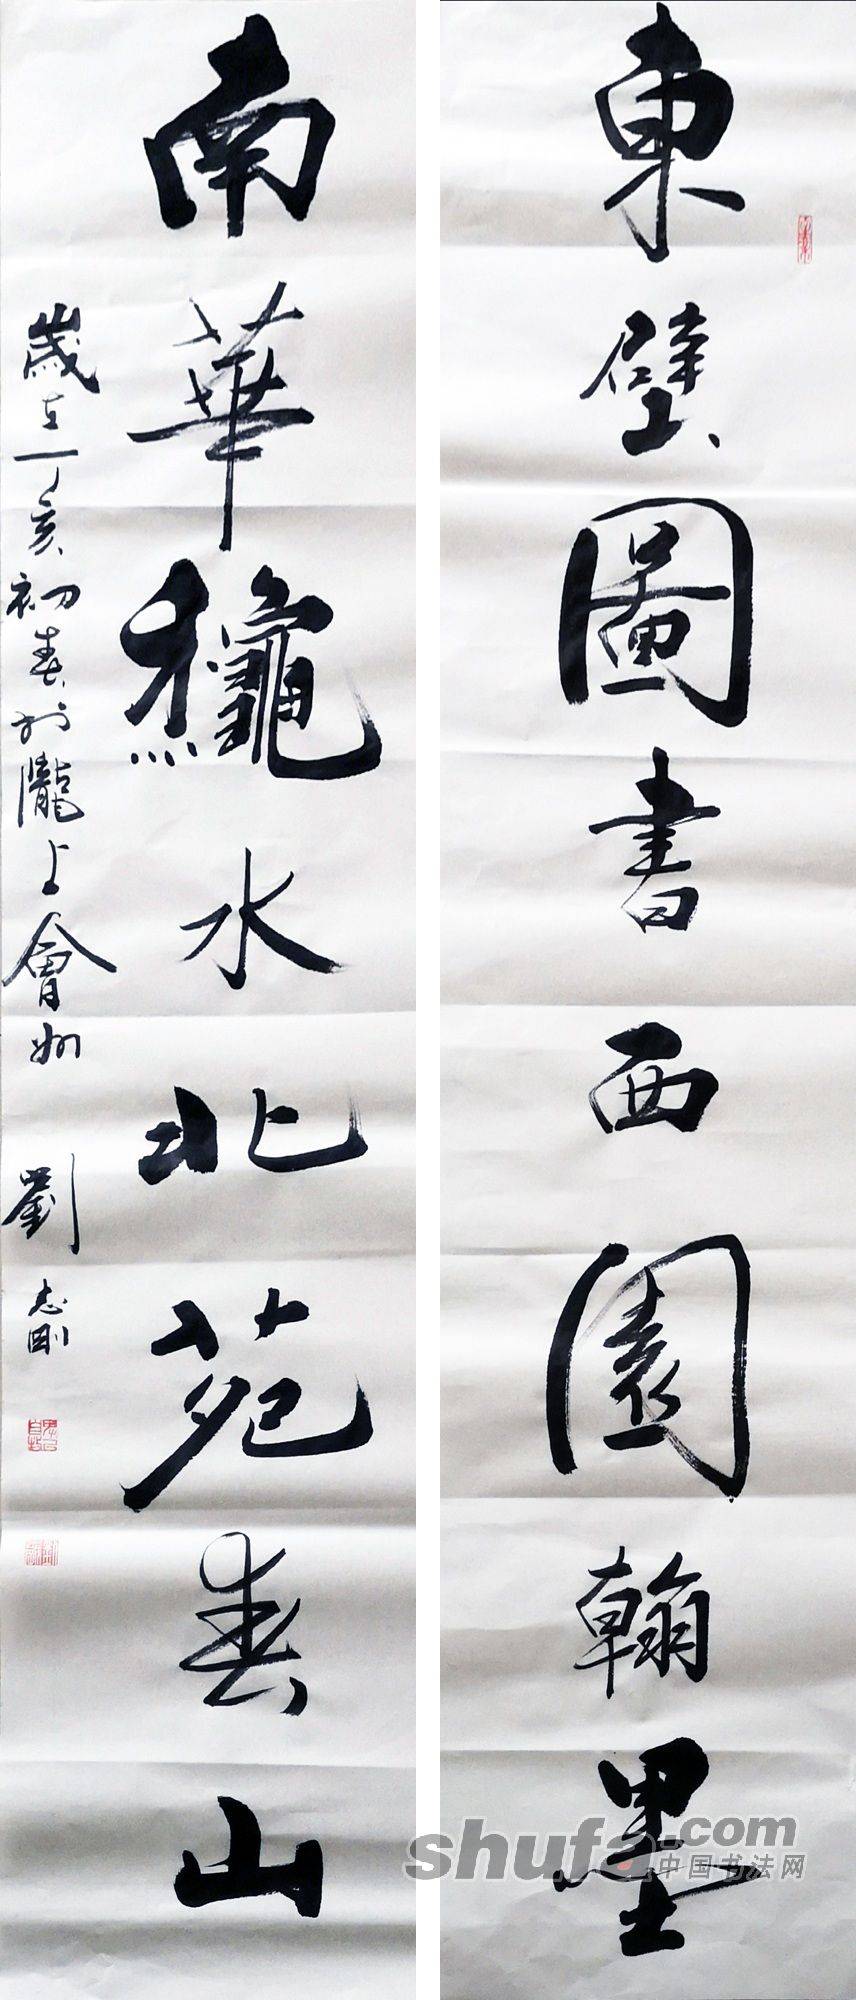 東壁圖書西園翰墨
南華龝水北苑春山
歲在丁亥初春於隴上會州
劉志剛
shufa.com
中国书法网